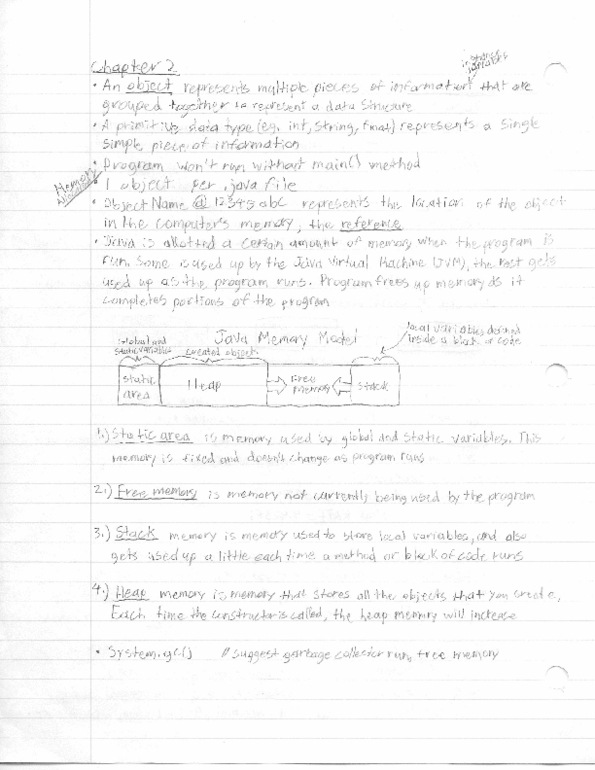 Chapter 2
instance variables
• An object represents multiple pieces of information that are
grouped together to represent a data structure
• A primitive data type (eg. int, string, float) represents a single
simple piece of information
• Program won't run without main() method
Memory
• 1 object per .java file
• Object Name @ 12345abc represents the location of the object
in the computer's memory, the reference
• Java is allotted a certain amount of memory when the program is
run. Some is used up by the Java Virtual Machine (JVM), the rest gets
used up as the program runs. Program frees up memory as it
completes portions of the program
Global and
static variables
created objects
Java Memory Model
local variables defined
inside a block of code
static
area
Heap
Free
Memory
Stack
1.) Static area is memory used by global and static variables. This
memory is fixed and doesn't change as program runs
2.) Free memory is memory not currently being used by the program
3.) Stack memory is memory used to store local variables, and also
gets used up a little each time a method or block of code runs
4.) Heap memory is memory that stores all the objects that you create,
Each time the constructor is called, the heap memory will increase
• System.gc() // suggest garbage collector run, free memory